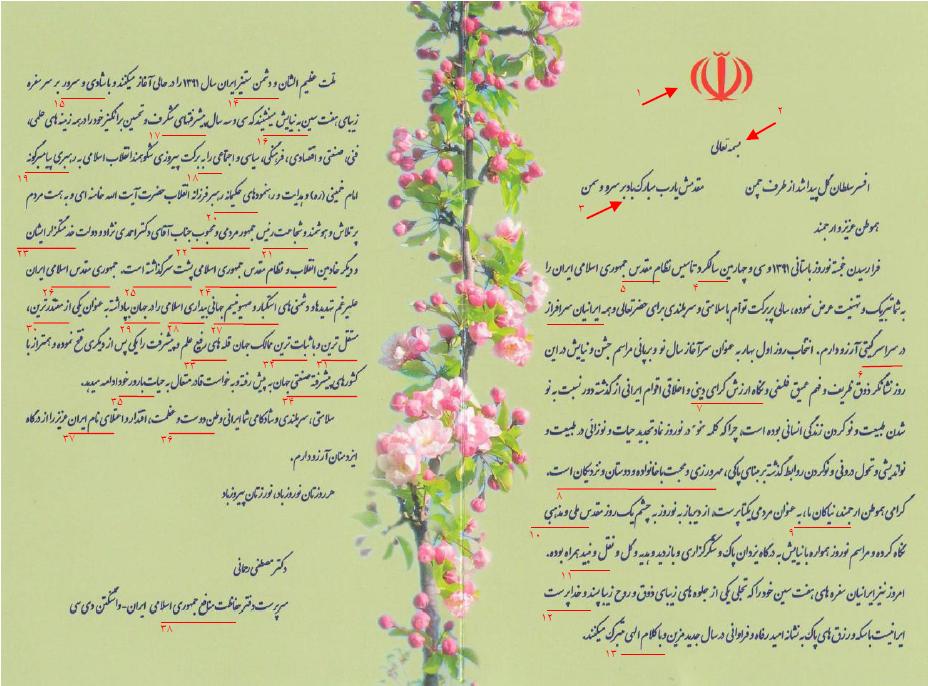 ۱
۲
بسمه تعالی
افسر سلطان گل پیدا شد از طرف چمن مقدمش یارب مبارک باد بر سرو و سمن
۳
هموطن عزیز و ارجمند
فرا رسیدن خجسته نوروز باستانی ۱۳۹۱ و سی و چهارمین سالگرد تاسیس نظام مقدس جمهوری اسلامی ایران را
۴ ۵
به شما تبریک و تهنیت عرض نموده، سالی پربرکت توأم با سلامتی و سربلندی برای حضرتعالی و همه ایرانیان سرافراز
در سراسر گیتی آرزو دارم. انتخاب روز اول بهار به عنوان سرآغاز سال نو و برپائی مراسم جشن و نیایش در این
۶
روز نشانگر ذوق ظریف و فهم عمیق فلسفی و نگاه ارزش گرای دینی و اخلاقی اقوام ایرانی از گذشته دور نسبت به نو
۷
شدن طبیعت و نو کردن زندگی انسانی بوده است، چرا که کلمه "نو" در نوروز نماد تجدید حیات و نوزائی در طبیعت و
نواندیشی و تحول درونی و نو کردن روابط گذشته بر مبنای پاکی، مهرورزی و محبت با خانواده و دوستان و نزدیکان است.
۸
گرامی هموطن ارجمند، نیاکان ما، به عنوان مردمی یکتاپرست، از دیرباز به نوروز به چشم یک روز مقدس ملی و مذهبی
۹ ۱۰
نگاه کرده و مراسم نوروز همواره با نیایش به درگاه یزدان پاک و شکرگزاری و بازدید و هدیه و گل و نقل و نبید همراه بوده.
۱۱
امروز نیز ایرانیان سفره های هفت سین خود را که تجلی یکی از جلوه های زیبای ذوق و روح زیباپسند و خداپرست
۱۲
ایرانیست با سکه و رزق های پاک به نشانه امید رفاه و فراوانی در سال جدید مزین و با کلام الهی متبرک میکنند.
۱۳
ملت عظیم الشان و دشمن ستیز ایران سال ۱۳۹۱ را در حالی آغاز میکنند و با شادی و سرور بر سر سفره
۱۴ ۱۵
زیبای هفت سین به نیایش مینشیند که سی و سه سال پیشرفتهای شگرف و تحسین برانگیز خود را در همه زمینه های علمی،
۱۶ ۱۷
فنی، صنعتی و اقتصادی، فرهنگی، سیاسی و اجتماعی را به برکت پیروزی شکوهمند انقلاب اسلامی به رهبری پیامبرگونه
۱۸ ۱۹
امام خمینی (ره) و هدایت و رهنمودهای حکیمانه رهبر فرزانه انقلاب حضرت آیت الله خامنه ای و به همت مردم
۲۰
پرتلاش و هوشمند و شجاعت رئیس جمهور مردمی و محبوب جناب آقای دکتر احمدی نژاد و دولت خدمتگزار ایشان
۲۱ ۲۲ ۲۳
و دیگر خادمین انقلاب و نظام مقدس جمهوری اسلامی پشت سر گذاشته است. جمهوری مقدس اسلامی ایران
۲۴ ۲۵ ۲۶
علیرغم تهدیدها و دشمنی های استکبار و صهیونیسم جهانی بیداری اسلامی را در جهان بپا داشته به عنوان یکی از مقتدرترین،
۲۷ ۲۸ ۲۹ ۳۰
مستقل ترین و با ثبات ترین ممالک جهان قله های رفیع علم و پیشرفت را یکی پس از دیگری فتح نموده و همتراز با
۳۱ ۳۲ ۳۳
کشورهای پیشرفته صنعتی جهان به پیش رفته و به خواست قادر متعال به حیات بارور خود ادامه میدهد.
۳۴ ۳۵
سلامتی، سربلندی و شادکامی شما ایرانی وطن دوست و عظمت، اقتدار و اعتلای نام ایران عزیز را از درگاه
۳۶ ۳۷
ایزد منان آرزو دارم.
هر روزتان نوروز باد، نوروزتان پیروز باد
دکتر مصطفی رحمانی
سرپرست دفتر حفاظت منافع جمهوری اسلامی ایران-واشنگتن دی سی
۳۸